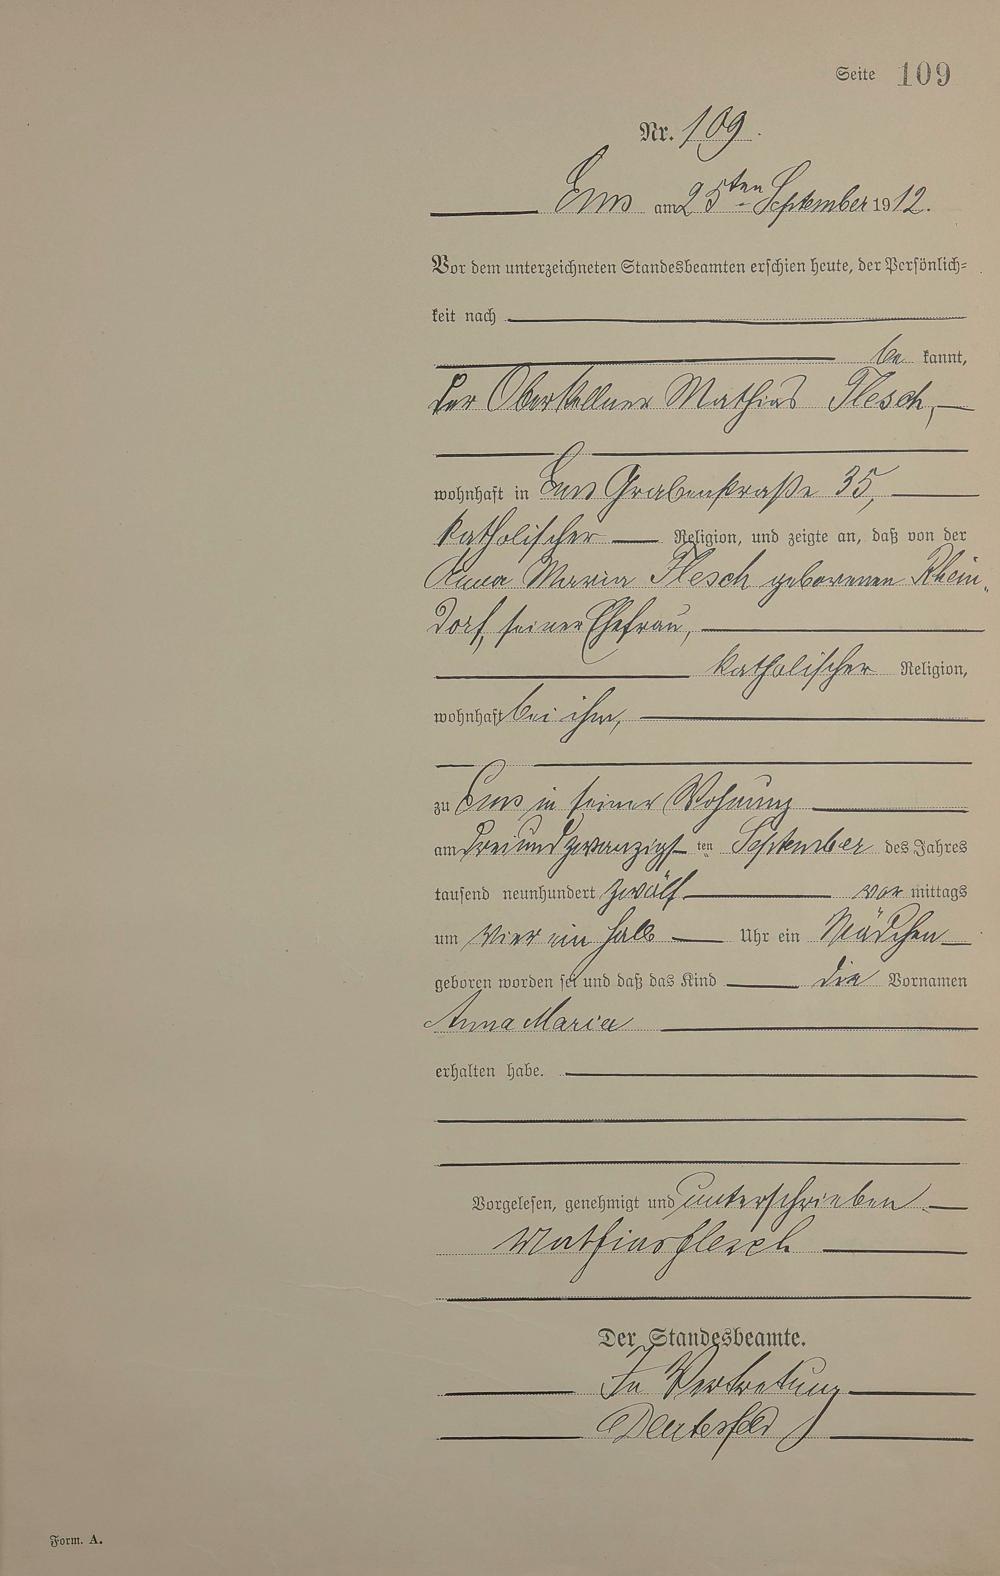 Seite 109
Nr. 109.
Ems am 25ten September 1912.
Vor dem unterzeichneten Standesbeamten erschien heute, der Persönlich-
keit nach
be kannt,
der Oberkellner Mathias Flesch,
wohnhaft in Ems Grabenstraße 35,
katholischer Religion, und zeigte an, daß von der
Anna Maria Flesch geborenen Rhein-
dorf, seiner Ehefrau,
katholischer Religion,
wohnhaft bei ihm,
zu Ems in seiner Wohnung
am dreiundzwanzigsten September des Jahres
tausend neunhundert zwölf vor mittags
um vier ein halb Uhr ein Mädchen
geboren worden sei und daß das Kind die Vornamen
Anna Maria
erhalten habe.
Vorgelesen, genehmigt und unterschrieben
Mathias Flesch
Der Standesbeamte.
In Vertretung
Form. A.